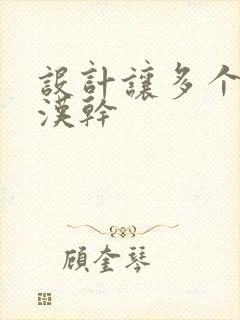 設計讓多个
漢幹
顧奎琴